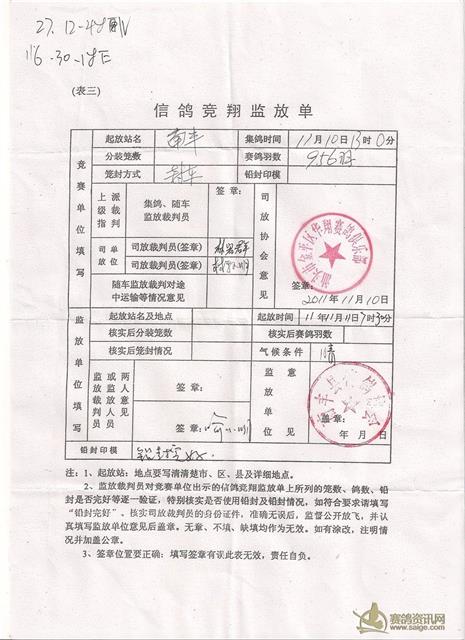 (表三)
信鸽竞翔监放单
竞赛单位填写
起放站名 南丰 集鸽时间 11月10日13时0分
分装笼数 赛鸽羽数 956羽
笼封方式 封车 铅封印模
上级指派裁判 集鸽、随车监放裁判员 签章:
司放单位 司放裁判员(签章)
司放裁判员(签章)
随车监放裁判对途中运输等情况意见
司放协会意见
签章:
2011年11月10日
监放单位填写
起放站名及地点 起放时间 11年11月11日7时30分
核实后分装笼数 核实后赛鸽羽数
核实后笼封情况 气候条件 晴
监放裁判或两人放飞见证人意见 签章:
签章:
监放单位意见
盖章:
年 月 日
铅封印模 铅封完好
注:1、起放站:地点要写清清楚市、区、县及详细地点。
2、监放裁判员对竞赛单位出示的信鸽竞翔监放单上所列的笼数、鸽数、铅
封是否完好等逐一验证,特别核实是否使用铅封及铅封情况,如符合要求请填写
“铅封完好”、核实司放裁判员的身份证件,准确无误后,监督公开放飞,并认
真填写监放单位意见后盖章。无章、不填、缺填均作为无效。如有涂改,注明情
况并加盖公章。
3、签章位置要正确:填写签章有误此表无效,责任自负。
汕头市金平区华翔赛鸽俱乐部
赛鸽资讯网
www.saige.com